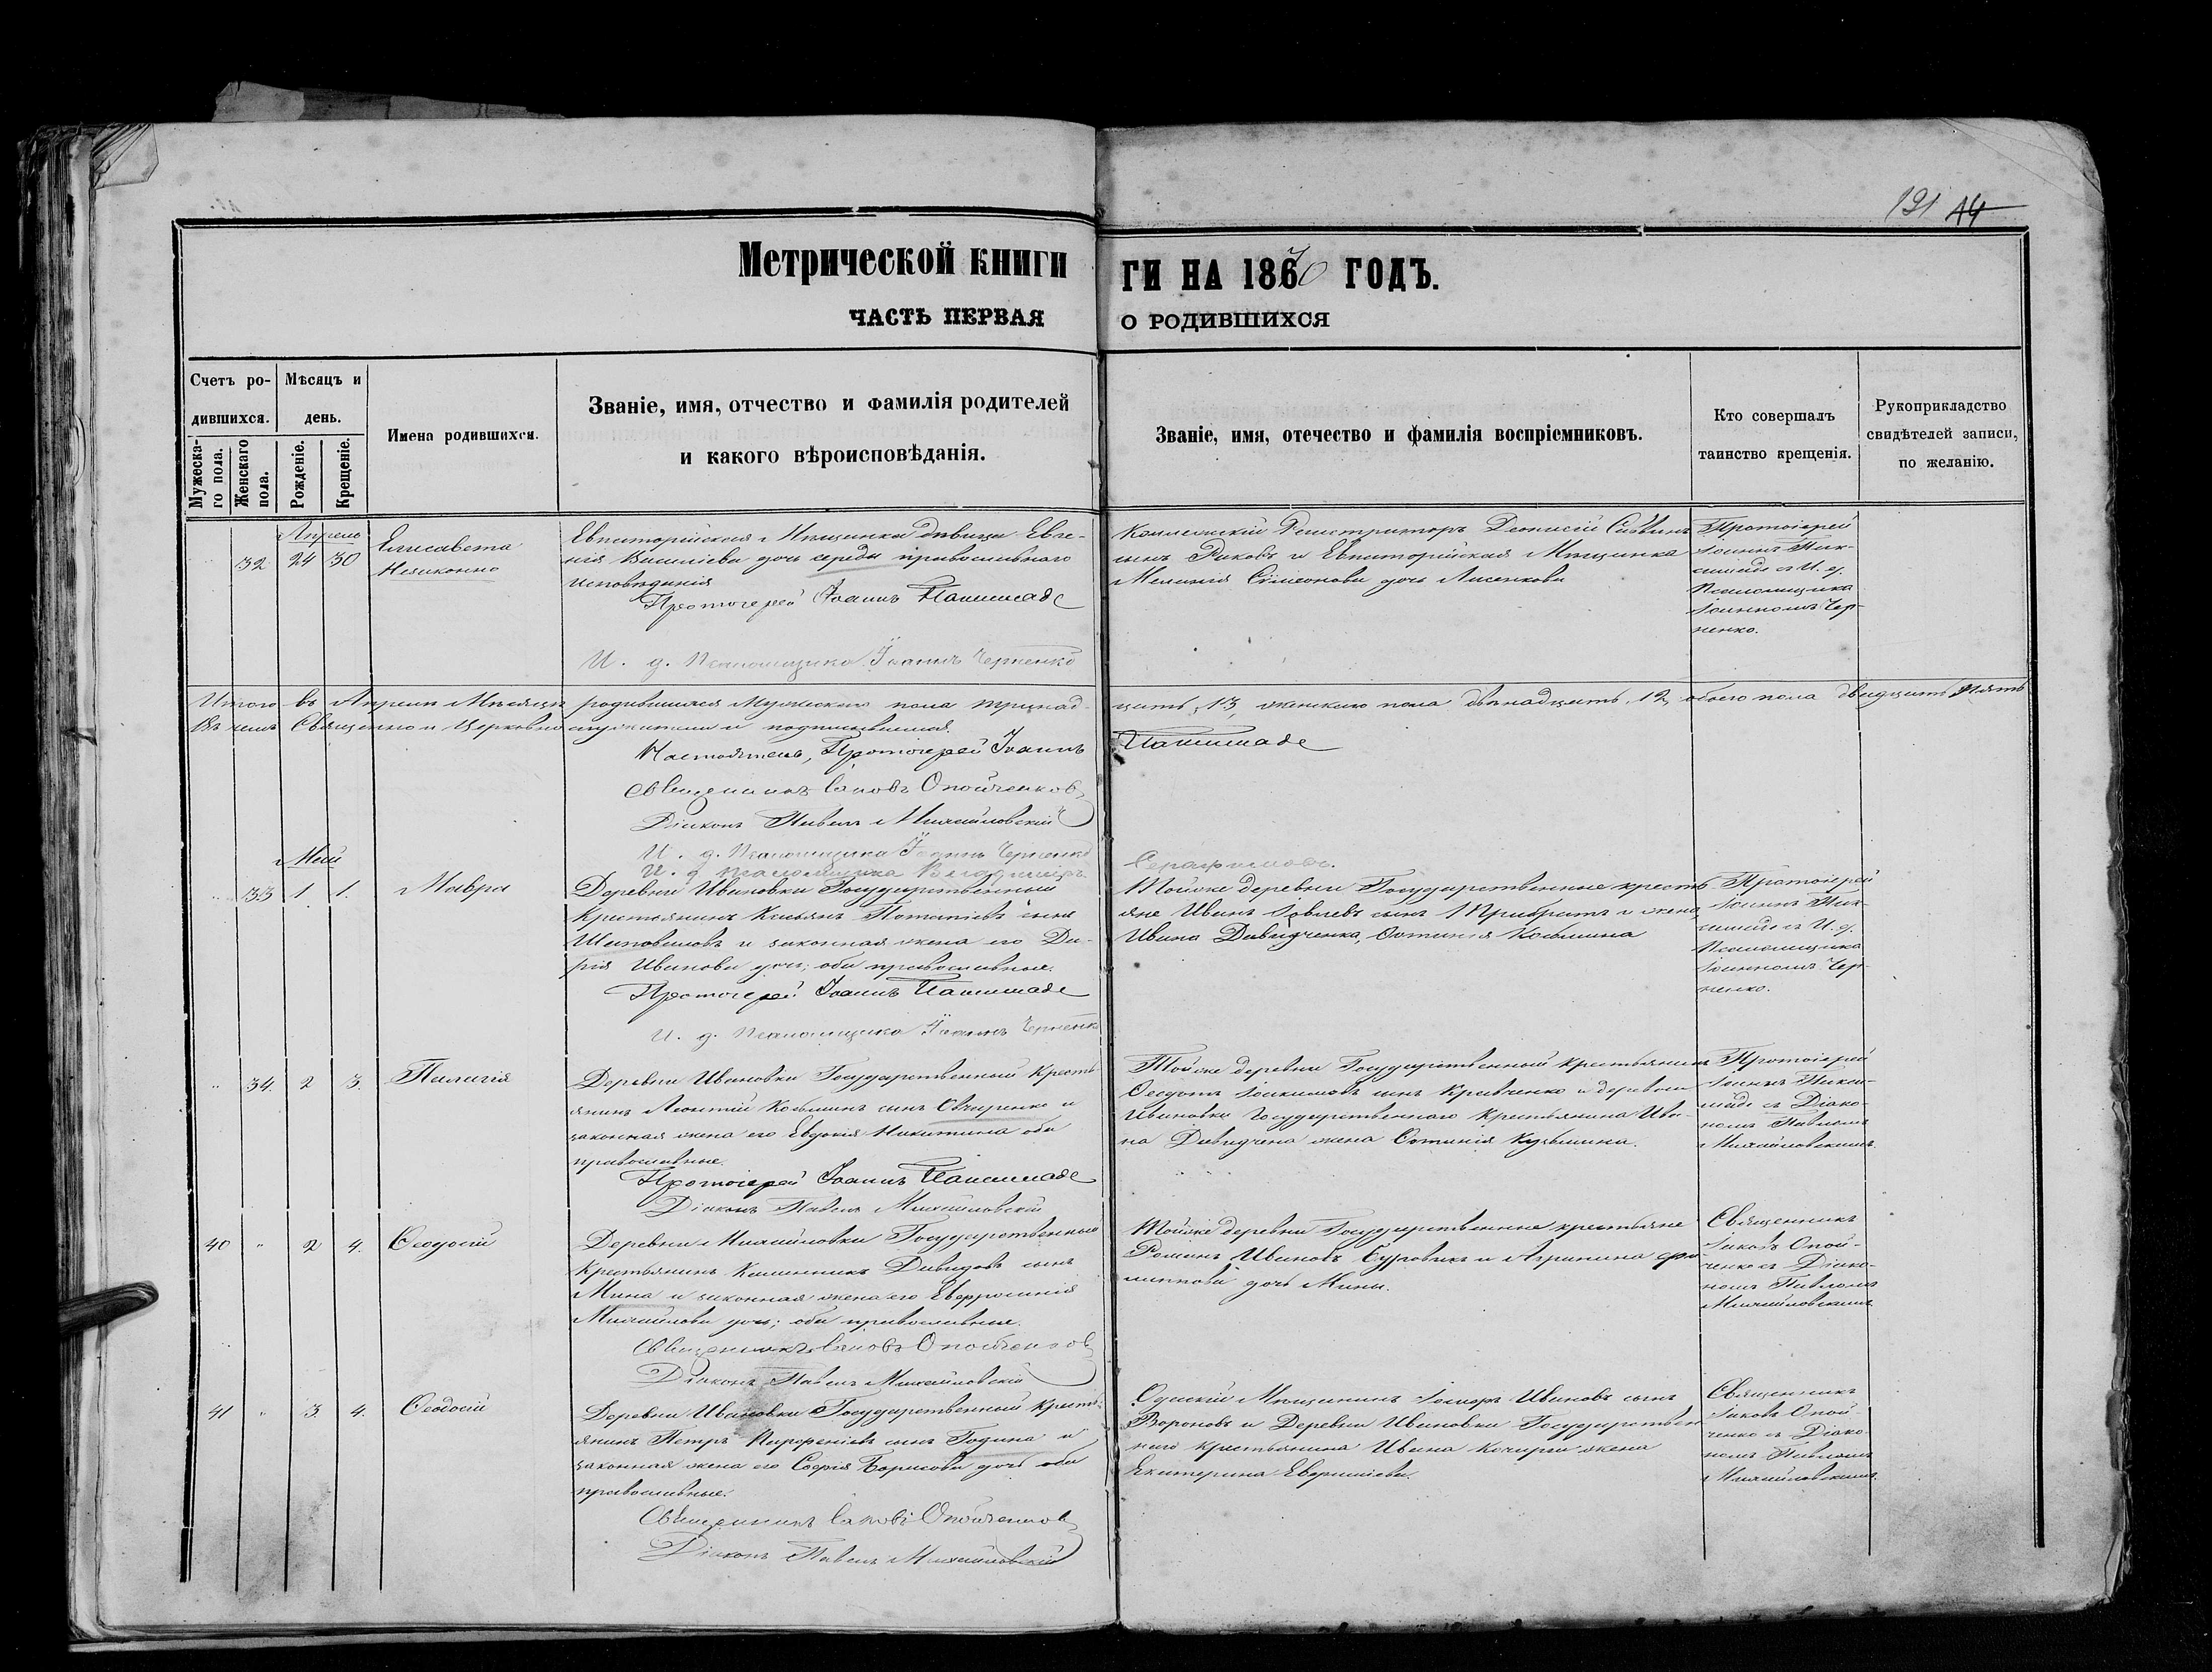 191 44
Метрической книги
ГИ НА 1870 ГОДЪ.
ЧАСТЬ ПЕРВАЯ
О РОДИВШИХСЯ
Счетъ ро-
дившихся.
Мужеска-
го пола.
Женскаго
пола.
Мѣсяцъ и
день.
Рожденіе.
Крещеніе.
Имена родившихся.
Званіе, имя, отчество и фамилія родителей
и какого вѣроисповѣданія.
Званіе, имя, отечество и фамилія воспріемниковъ.
Кто совершалъ
таинство крещенія.
Рукоприкладство
свидѣтелей записи,
по желанію.
Апрель
32 24 30
Елисавета
Незаконно
Евпаторійская Мѣщанка дѣвица Евге-
нія Васильева дочь православнаго
исповѣданія
Протоіерей Іоаннъ
И. д. Псаломщика Іоаннъ Черненко
Коллежскій Регистраторъ Діонисій
сынъ и Евпаторійская Мѣщанка
Меланія Симеонова дочь Лисенкова
Протоіерей
Іоаннъ
съ И. д.
Псаломщика
Іоанномъ Чер-
ненко.
Итого въ Апрелѣ Мѣсяцѣ родившихся Мужескаго пола тринад-
цать, 13, женскаго пола двѣнадцать, 12, обоего пола двадцать пять
Въ чемъ Священно и Церковно служители и подписываемся.
Настоятель, Протоіерей Іоаннъ
Священникъ Іаковъ Опойченковъ
Діаконъ Павелъ Михайловскій
И. д. Псаломщика Іоаннъ Черненко
И. д. псаломщика Владиміръ
Серафимовъ.
Май
33 1 1.
Мавра
Деревни Ивановки Государственный
Крестьянинъ Касьянъ Потапіевъ сынъ
Шаповаловъ и законная жена его Да-
рія Иванова дочь; оба православные.
Протоіерей Іоаннъ
И. д. Псаломщика Іоаннъ Черненко
Тойже деревни Государственные кресть-
яне Иванъ сынъ и жена
Ивана Давидченка, Фотинія Козьмина
Протоіерей
Іоаннъ
съ И. д.
Псаломщика
Іоанномъ Чер-
ненко.
34. 2 3.
Пелагія
Деревни Ивановки Государственный Кресть-
янинъ Леонтій Козьминъ сынъ Овчаренко и
законная жена его Евдокія Никитина оба
православные.
Протоіерей Іоаннъ
Діаконъ Павелъ Михайловскій
Тойже деревни Государственный крестьянинъ
Феодотъ Іоакимовъ сынъ Кравченко и деревни
Ивановки Государственнаго Крестьянина Ива-
на Давидчена жена Фотинія Кузьмина.
Протоіерей
Іоаннъ
съ Діако-
номъ Павломъ
Михайловскимъ
40 " 2 4.
Феодосій
Деревни Михайловки Государственный
Крестьянинъ Давидовъ сынъ
Мина и законная жена его Евфросинія
Михайлова дочь; оба православные.
Священникъ Іаковъ Опойченковъ
Діаконъ Павелъ Михайловскій
Тойже деревни Государственные крестьяне
Романъ Ивановъ и Агрипина
дочь Мины.
Священникъ
Іаковъ Опой-
ченко съ Діако-
номъ Павломъ
Михайловскимъ
41 " 3. 4.
Феодосій
Деревни Ивановки Государственный Кресть-
янинъ Петръ Парфеніевъ сынъ Година и
законная жена его Софія Борисова дочь оба
православные.
Священникъ Іаковъ Опойченковъ
Діаконъ Павелъ Михайловскій
Одесскій Мѣщанинъ Ивановъ сынъ
Вороновъ и Деревни Ивановки Государствен-
наго крестьянина Ивана жена
Екатерина
Священникъ
Іаковъ Опой-
ченко съ Діако-
номъ Павломъ
Михайловскимъ